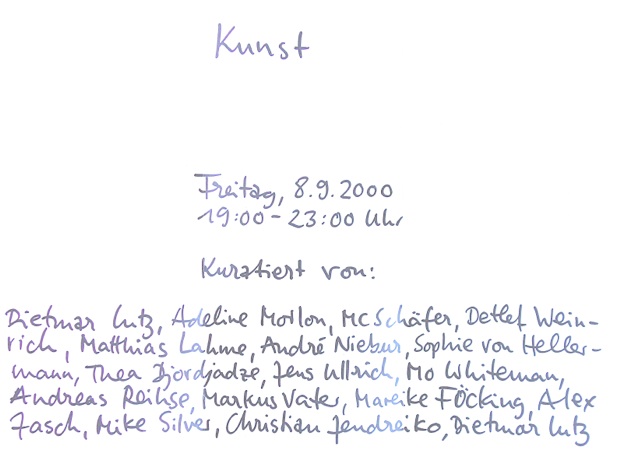 Kunst
Freitag, 8.9.2000
19:00-23:00 Uhr
Kuratiert von:
Dietmar Lutz, Adeline Morlon, MC Schäfer, Detlef Wein-
rich, Matthias Lahme, André Niebur, Sophie von Heller-
mann, Thea Djordjadze, Jens Ullrich, Mo Whiteman,
Andreas Reihse, Markus Vater, Mareike Föcking, Alex
Jasch, Mike Silver, Christian Jendreiko, Dietmar Lutz